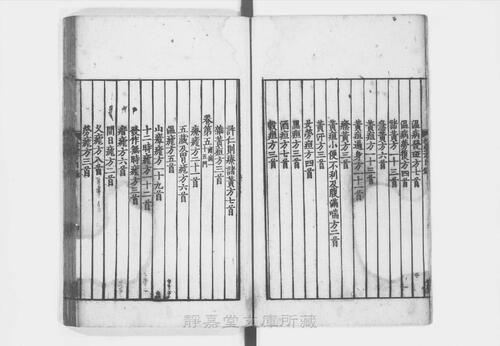 溫病發斑方七首
溫病勞復方四首
諸黃方一十三首
急黃方六首
黃疸方一十三首
黃疸遍身方一十一首
瘀黃方三首
黃疸小便不利及腹滿喘方二首
黃汗方三首
女勞疸方四首
黑疸方三首
酒疸方七首
穀疸方三首
許仁則療諸黃方七首
雜黃疸方三首
卷第五
療瘧方二十一首
五藏及胃瘧方六首
溫瘧方五首
山瘴瘧方一十九首
十二時瘧方一十二首
發作無時瘧方三首
瘧方六首
間日瘧方二首
久瘧方八首
勞瘧方三首
靜嘉堂文庫所藏